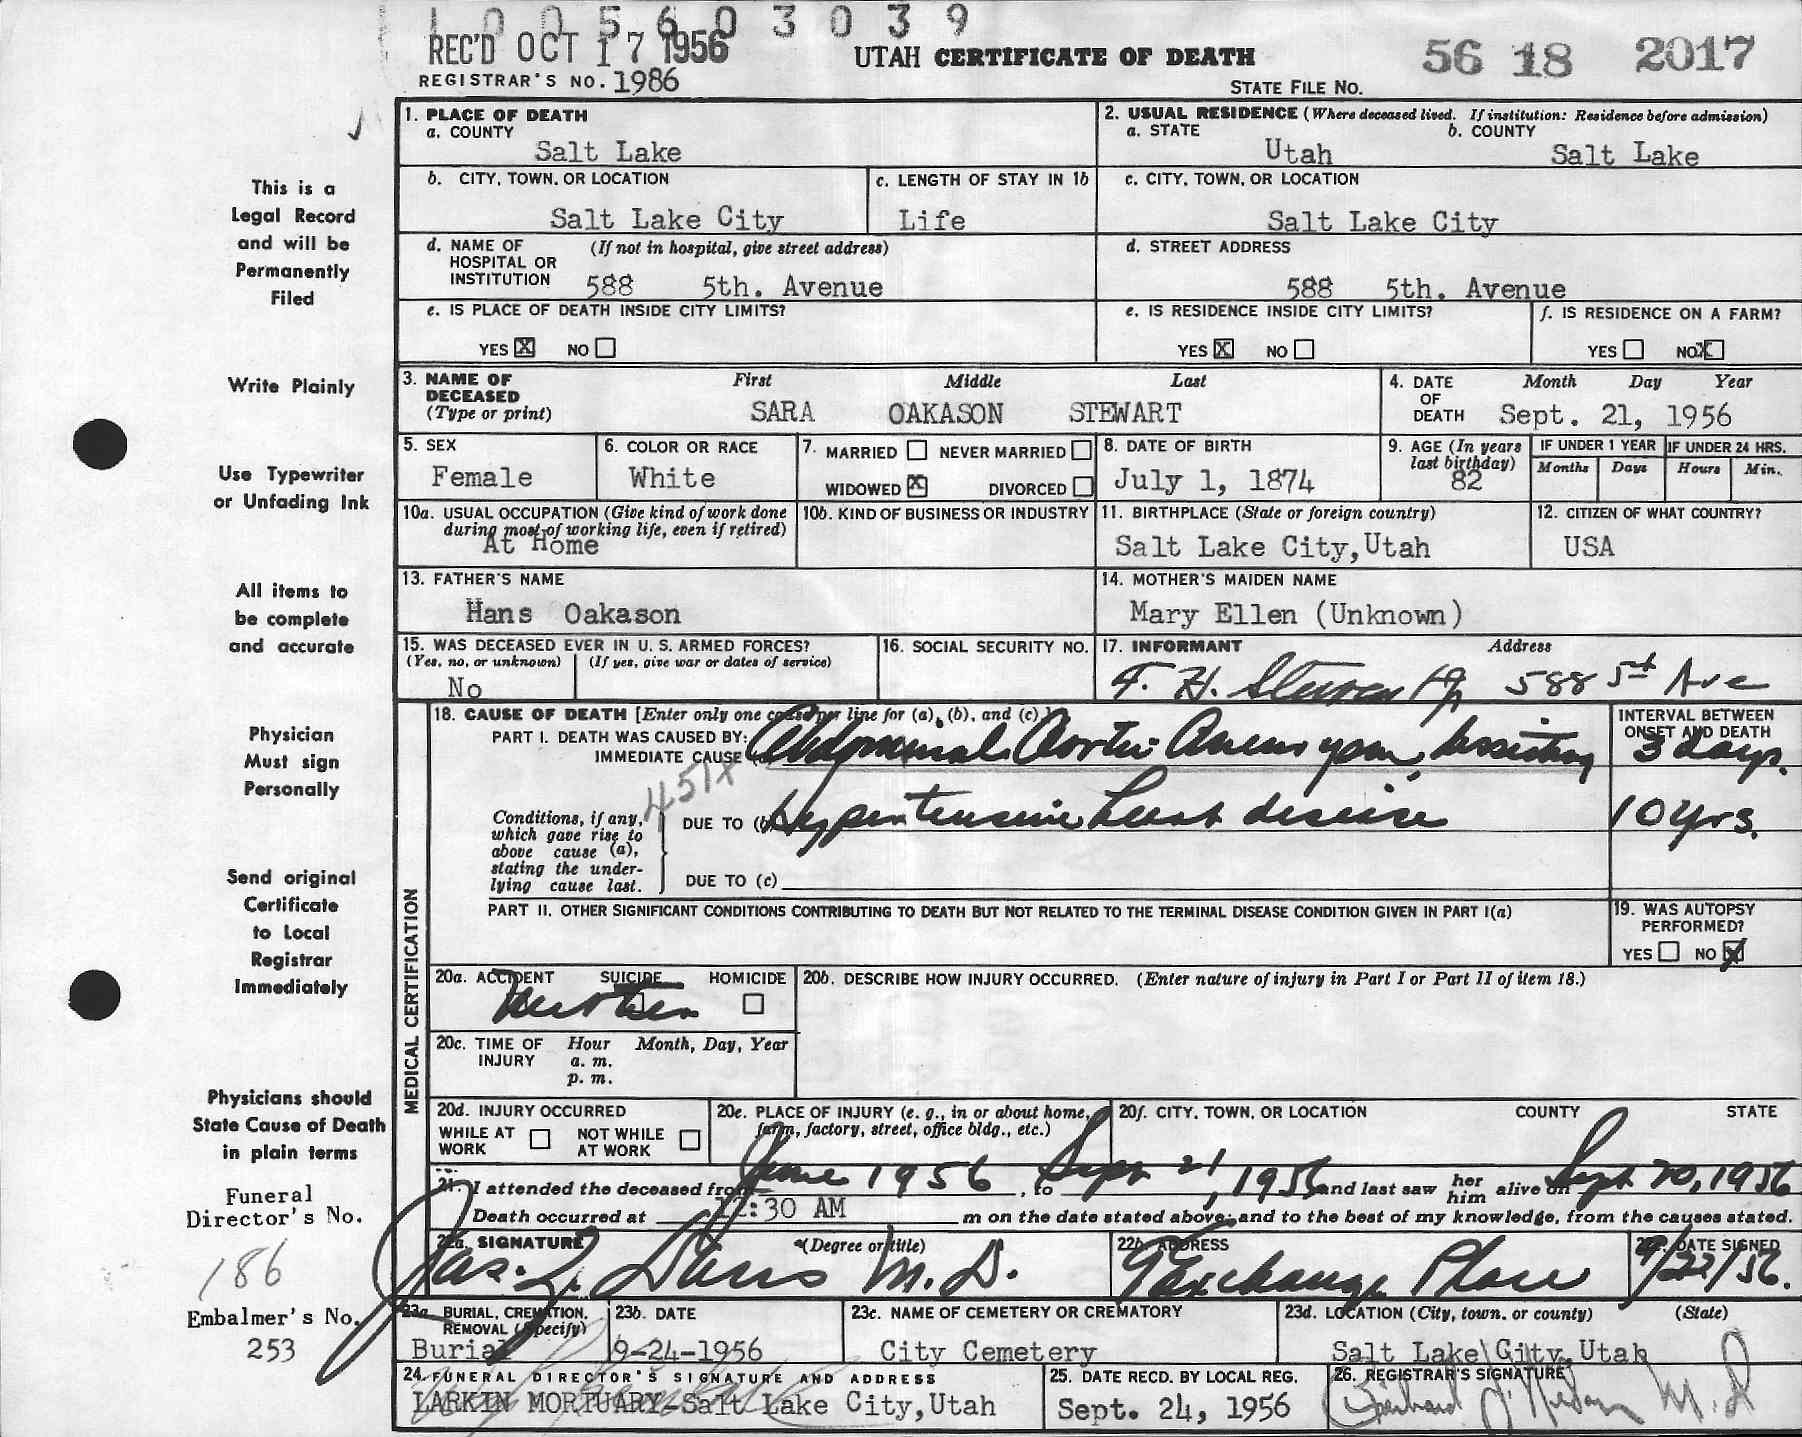 1005603039
REC'D OCT 17 1956
UTAH CERTIFICATE OF DEATH
56 18 2017
REGISTRAR'S NO. 1986
STATE FILE NO.
This is a
Legal Record
and will be
Permanently
Filed
Write Plainly
Use Typewriter
or Unfading Ink
All items to
be complete
and accurate
Physician
Must sign
Personally
Send original
Certificate
to Local
Registrar
Immediately
Physicians should
State Cause of Death
in plain terms
Funeral
Director's No.
186
Embalmer's No.
253
1. PLACE OF DEATH
a. COUNTY
Salt Lake
2. USUAL RESIDENCE (Where deceased lived. If institution: Residence before admission)
a. STATE b. COUNTY
Utah Salt Lake
b. CITY, TOWN, OR LOCATION
Salt Lake City
c. LENGTH OF STAY IN 1b
Life
c. CITY, TOWN, OR LOCATION
Salt Lake City
d. NAME OF (If not in hospital, give street address)
HOSPITAL OR
INSTITUTION 588 5th. Avenue
d. STREET ADDRESS
588 5th. Avenue
e. IS PLACE OF DEATH INSIDE CITY LIMITS?
YES X NO
e. IS RESIDENCE INSIDE CITY LIMITS?
YES X NO
f. IS RESIDENCE ON A FARM?
YES NO X
3. NAME OF First Middle Last
DECEASED
(Type or print) SARA OAKASON STEWART
4. DATE Month Day Year
OF
DEATH Sept. 21, 1956
5. SEX
Female
6. COLOR OR RACE
White
7. MARRIED NEVER MARRIED
WIDOWED X DIVORCED
8. DATE OF BIRTH
July 1, 1874
9. AGE (In years
last birthday)
82
IF UNDER 1 YEAR IF UNDER 24 HRS.
Months Days Hours Min.
10a. USUAL OCCUPATION (Give kind of work done
during most of working life, even if retired)
At Home
10b. KIND OF BUSINESS OR INDUSTRY
11. BIRTHPLACE (State or foreign country)
Salt Lake City, Utah
12. CITIZEN OF WHAT COUNTRY?
USA
13. FATHER'S NAME
Hans Oakason
14. MOTHER'S MAIDEN NAME
Mary Ellen (Unknown)
15. WAS DECEASED EVER IN U. S. ARMED FORCES?
(Yes, no, or unknown) (If yes, give war or dates of service)
No
16. SOCIAL SECURITY NO.
17. INFORMANT Address
588 5th Ave
MEDICAL CERTIFICATION
18. CAUSE OF DEATH [Enter only one cause per line for (a), (b), and (c).]
INTERVAL BETWEEN
ONSET AND DEATH
PART I. DEATH WAS CAUSED BY:
IMMEDIATE CAUSE (a) Abdominal Aortic Aneurysm, 3 days.
451x
Conditions, if any,
which gave rise to
above cause (a),
stating the under-
lying cause last.
DUE TO (b) Hypertensive heart disease 10 yrs.
DUE TO (c)
PART II. OTHER SIGNIFICANT CONDITIONS CONTRIBUTING TO DEATH BUT NOT RELATED TO THE TERMINAL DISEASE CONDITION GIVEN IN PART I(a)
19. WAS AUTOPSY
PERFORMED?
YES NO X
20a. ACCIDENT SUICIDE HOMICIDE
20b. DESCRIBE HOW INJURY OCCURRED. (Enter nature of injury in Part I or Part II of item 18.)
20c. TIME OF Hour Month, Day, Year
INJURY a. m.
p. m.
20d. INJURY OCCURRED
WHILE AT NOT WHILE
WORK AT WORK
20e. PLACE OF INJURY (e. g., in or about home,
farm, factory, street, office bldg., etc.)
20f. CITY, TOWN, OR LOCATION COUNTY STATE
21. I attended the deceased from June 1956, to Sept 21, 1956 and last saw her him alive on Sept 20, 1956
Death occurred at 12:30 AM m on the date stated above; and to the best of my knowledge, from the causes stated.
22a. SIGNATURE (Degree or title)
M. D.
22b. ADDRESS
Exchange Place
22c. DATE SIGNED
9/22/56.
23a. BURIAL, CREMATION,
REMOVAL (Specify)
Burial
23b. DATE
9-24-1956
23c. NAME OF CEMETERY OR CREMATORY
City Cemetery
23d. LOCATION (City, town, or county) (State)
Salt Lake City, Utah
24. FUNERAL DIRECTOR'S SIGNATURE AND ADDRESS
LARKIN MORTUARY-Salt Lake City, Utah
25. DATE RECD. BY LOCAL REG.
Sept. 24, 1956
26. REGISTRAR'S SIGNATURE
M. D